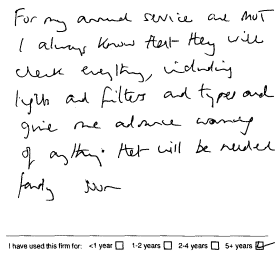 For my annual service and MOT
I always know that they will
check everything, including
lights and filters and tyres and
give me advance warning
of anything that will be needed
fairly soon
I have used this firm for: <1 year ☐ 1-2 years ☐ 2-4 years ☐ 5+ years ☑